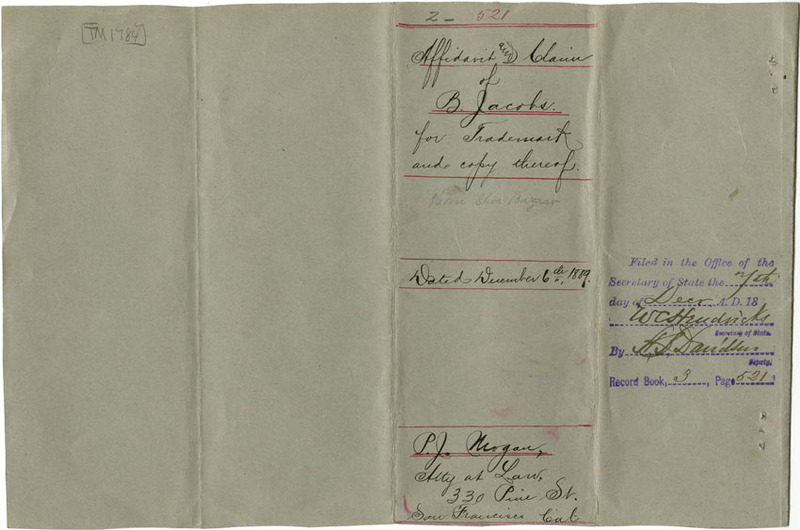 [TM1784]
2 - 521
Affidavit and Claim
of
B. Jacobs.
for Trademark
and copy thereof.
Shoe Bazaar
Dated December 6th, 1889.
P.J. Mogan,
Atty at Law,
330 Pine St.
San Francisco Cal
Filed in the Office of the
Secretary of State the 7th
day of Decr A.D. 18
W C Hendricks
Secretary of State.
By H. S. Davidson
Deputy.
Record Book, 3, Page 521